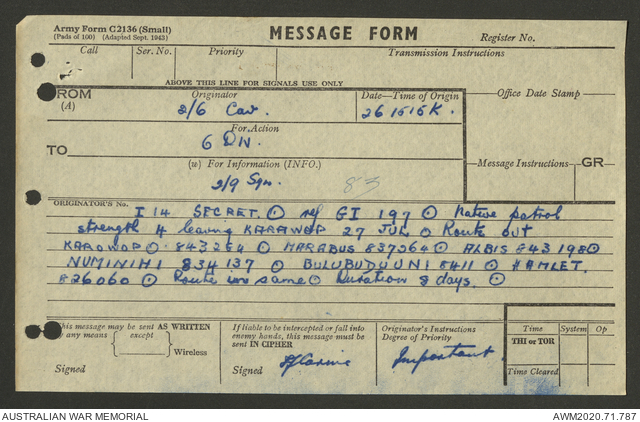 Army Form C2136 (Small)
(Pads of 100) (Adapted Sept. 1943)
MESSAGE FORM
Register No.
Call
Ser. No.
Priority
Transmission Instructions
ABOVE THIS LINE FOR SIGNALS USE ONLY
FROM
(A)
Originator
2/6 Cav.
Date—Time of Origin
26 1515K.
Office Date Stamp —
For Action
TO
6 DIV.
(w) For Information (INFO.)
2/9 Sqn. 83
Message Instructions
GR
ORIGINATOR'S No.
I 14 SECRET. ⊙ ref GI 197 ⊙ Native patrol
strength 4 leaving KARAWOP 27 JUL ⊙ Route out
KARAWOP ⊙ 843264 ⊙ MARABUS 837264 ⊙ ALBIS 843198 ⊙
NUMINIHI 834137 ⊙ BULUBUDUUNI 8411 ⊙ HAMLET.
826060 ⊙ Route in same ⊙ Duration 8 days. ⊙
This message may be sent AS WRITTEN
by any means { except }
Wireless
Signed
If liable to be intercepted or fall into
enemy hands, this message must be
sent IN CIPHER
Signed
Originator's Instructions
Degree of Priority
Important
Time
System
Op
THI or TOR
Time Cleared
AUSTRALIAN WAR MEMORIAL
AWM2020.71.787